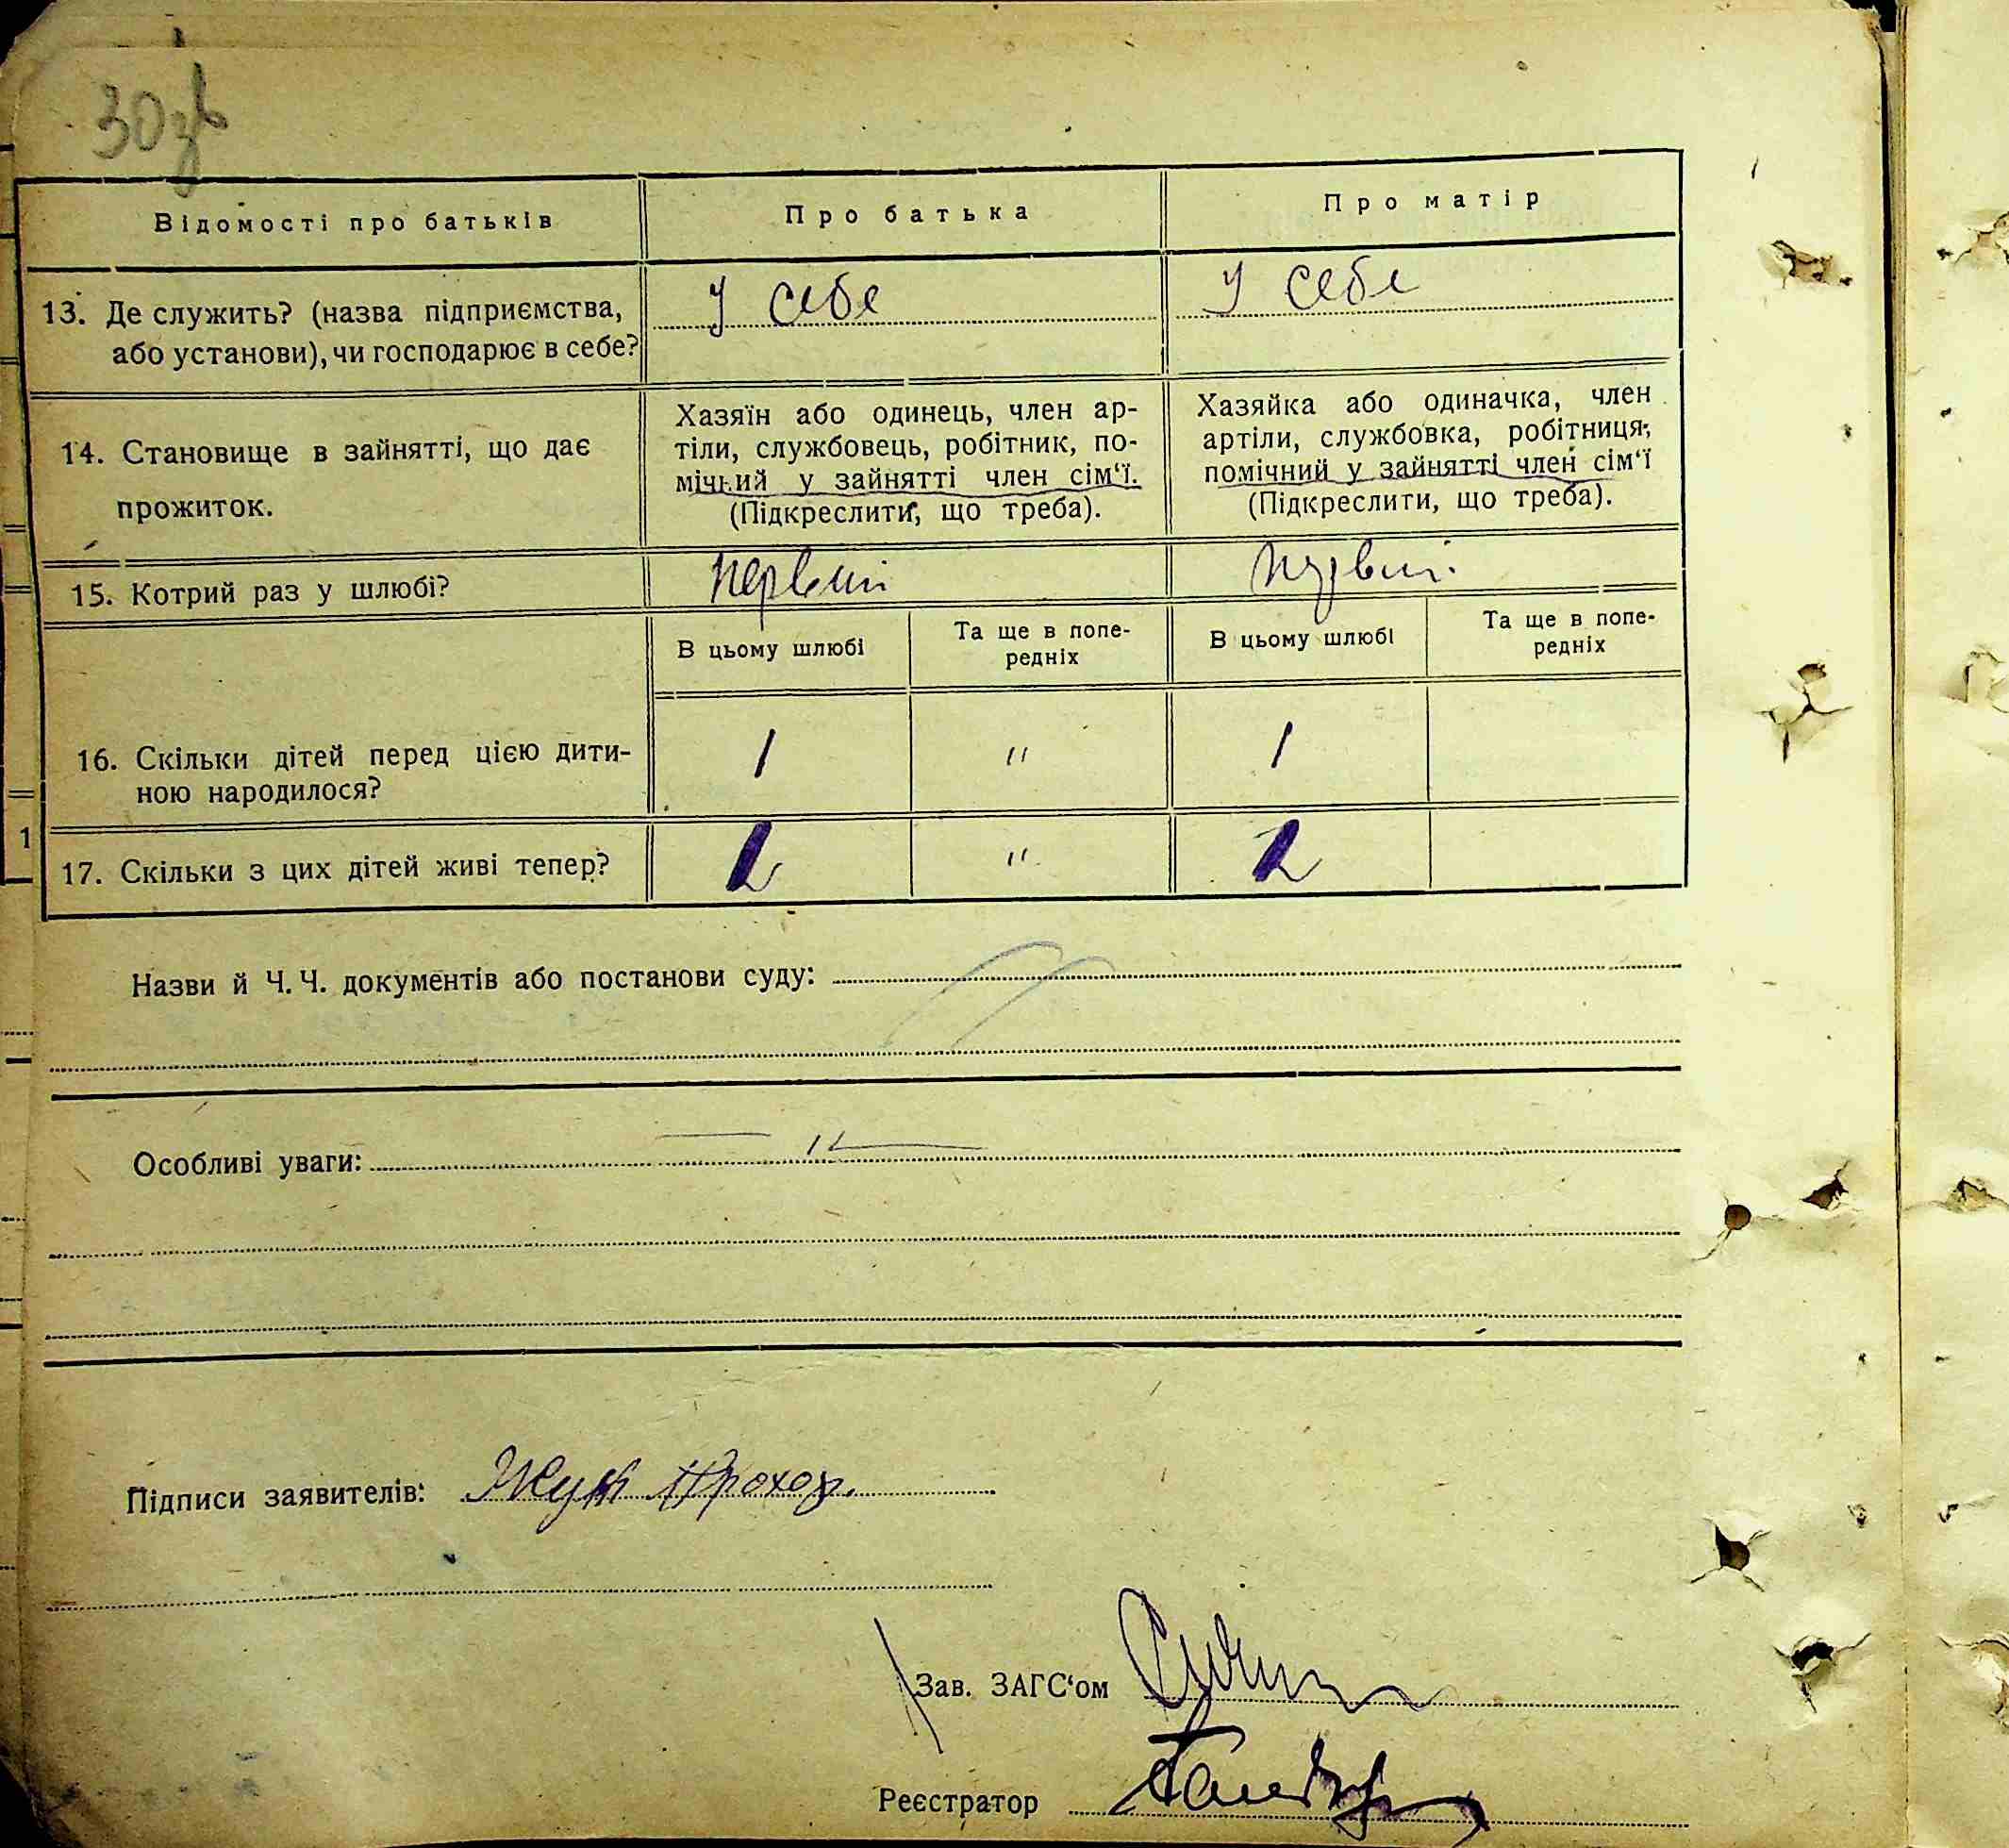 30 зв
Відомості про батьків
Про батька
Про матір
13. Де служить? (назва підприємства,
або установи), чи господарює в себе?
У себе
У себе
14. Становище в зайнятті, що дає
прожиток.
Хазяїн або одинець, член ар-
тіли, службовець, робітник, по-
мічний у зайнятті член сім'ї.
(Підкреслити, що треба).
Хазяйка або одиначка, член
артіли, службовка, робітниця,
помічний у зайнятті член сім'ї
(Підкреслити, що треба).
15. Котрий раз у шлюбі?
первий
первий.
В цьому шлюбі
Та ще в попе-
редніх
В цьому шлюбі
Та ще в попе-
редніх
16. Скільки дітей перед цією дити-
ною народилося?
1
"
1
17. Скільки з цих дітей живі тепер?
2
"
2
Назви й Ч. Ч. документів або постанови суду:
Особливі уваги: — " —
Підписи заявителів: Жук Прохор.
Зав. ЗАГС'ом
Реєстратор
1